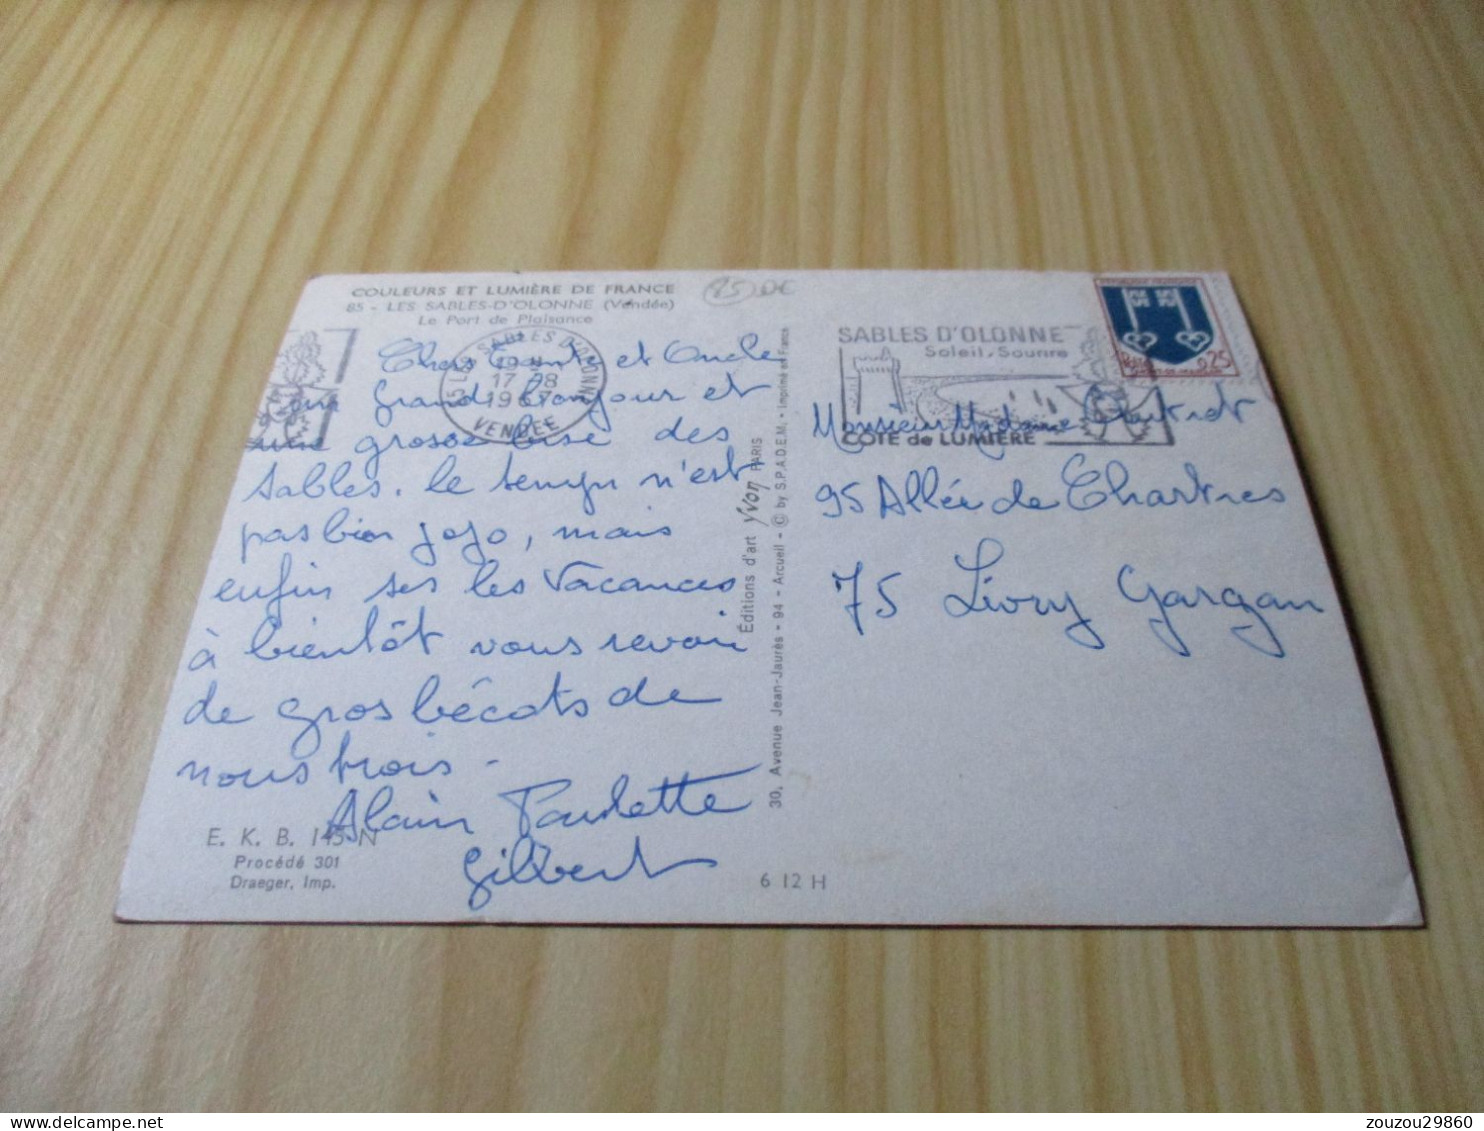 COULEURS ET LUMIÈRE DE FRANCE
85 - LES SABLES-D'OLONNE (Vendée)
Le Port de Plaisance
85
85 LES SABLES D'OLONNE
19 H
17 - 8
1967
VENDÉE
SABLES D'OLONNE
Soleil, Sourire
CÔTE de LUMIÈRE
RÉPUBLIQUE FRANÇAISE
0,25
Chers Tante et Oncle
un grand bonjour et
une grosse bise des
Sables. le temps n'est
pas bien jojo, mais
enfin ses les Vacances
à bientôt vous revoir
de gros bécots de
nous trois -
Alain Paulette
Gilbert
Monsieur Madame
95 Allée de Chartres
75 Livry Gargan
Éditions d'art Yvon PARIS
30, Avenue Jean-Jaurès - 94 - Arcueil - © by S.P.A.D.E.M. - Imprimé en France
E. K. B. 145 N
Procédé 301
Draeger, Imp.
6 12 H
zouzou29860
delcampe.net